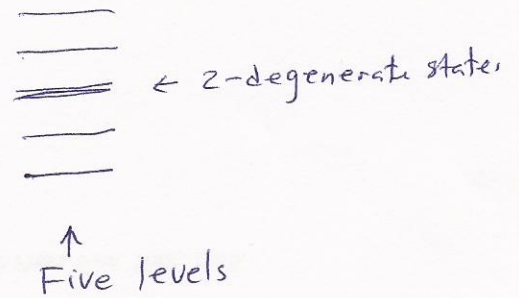 ← 2-degenerate states
↑
Five levels